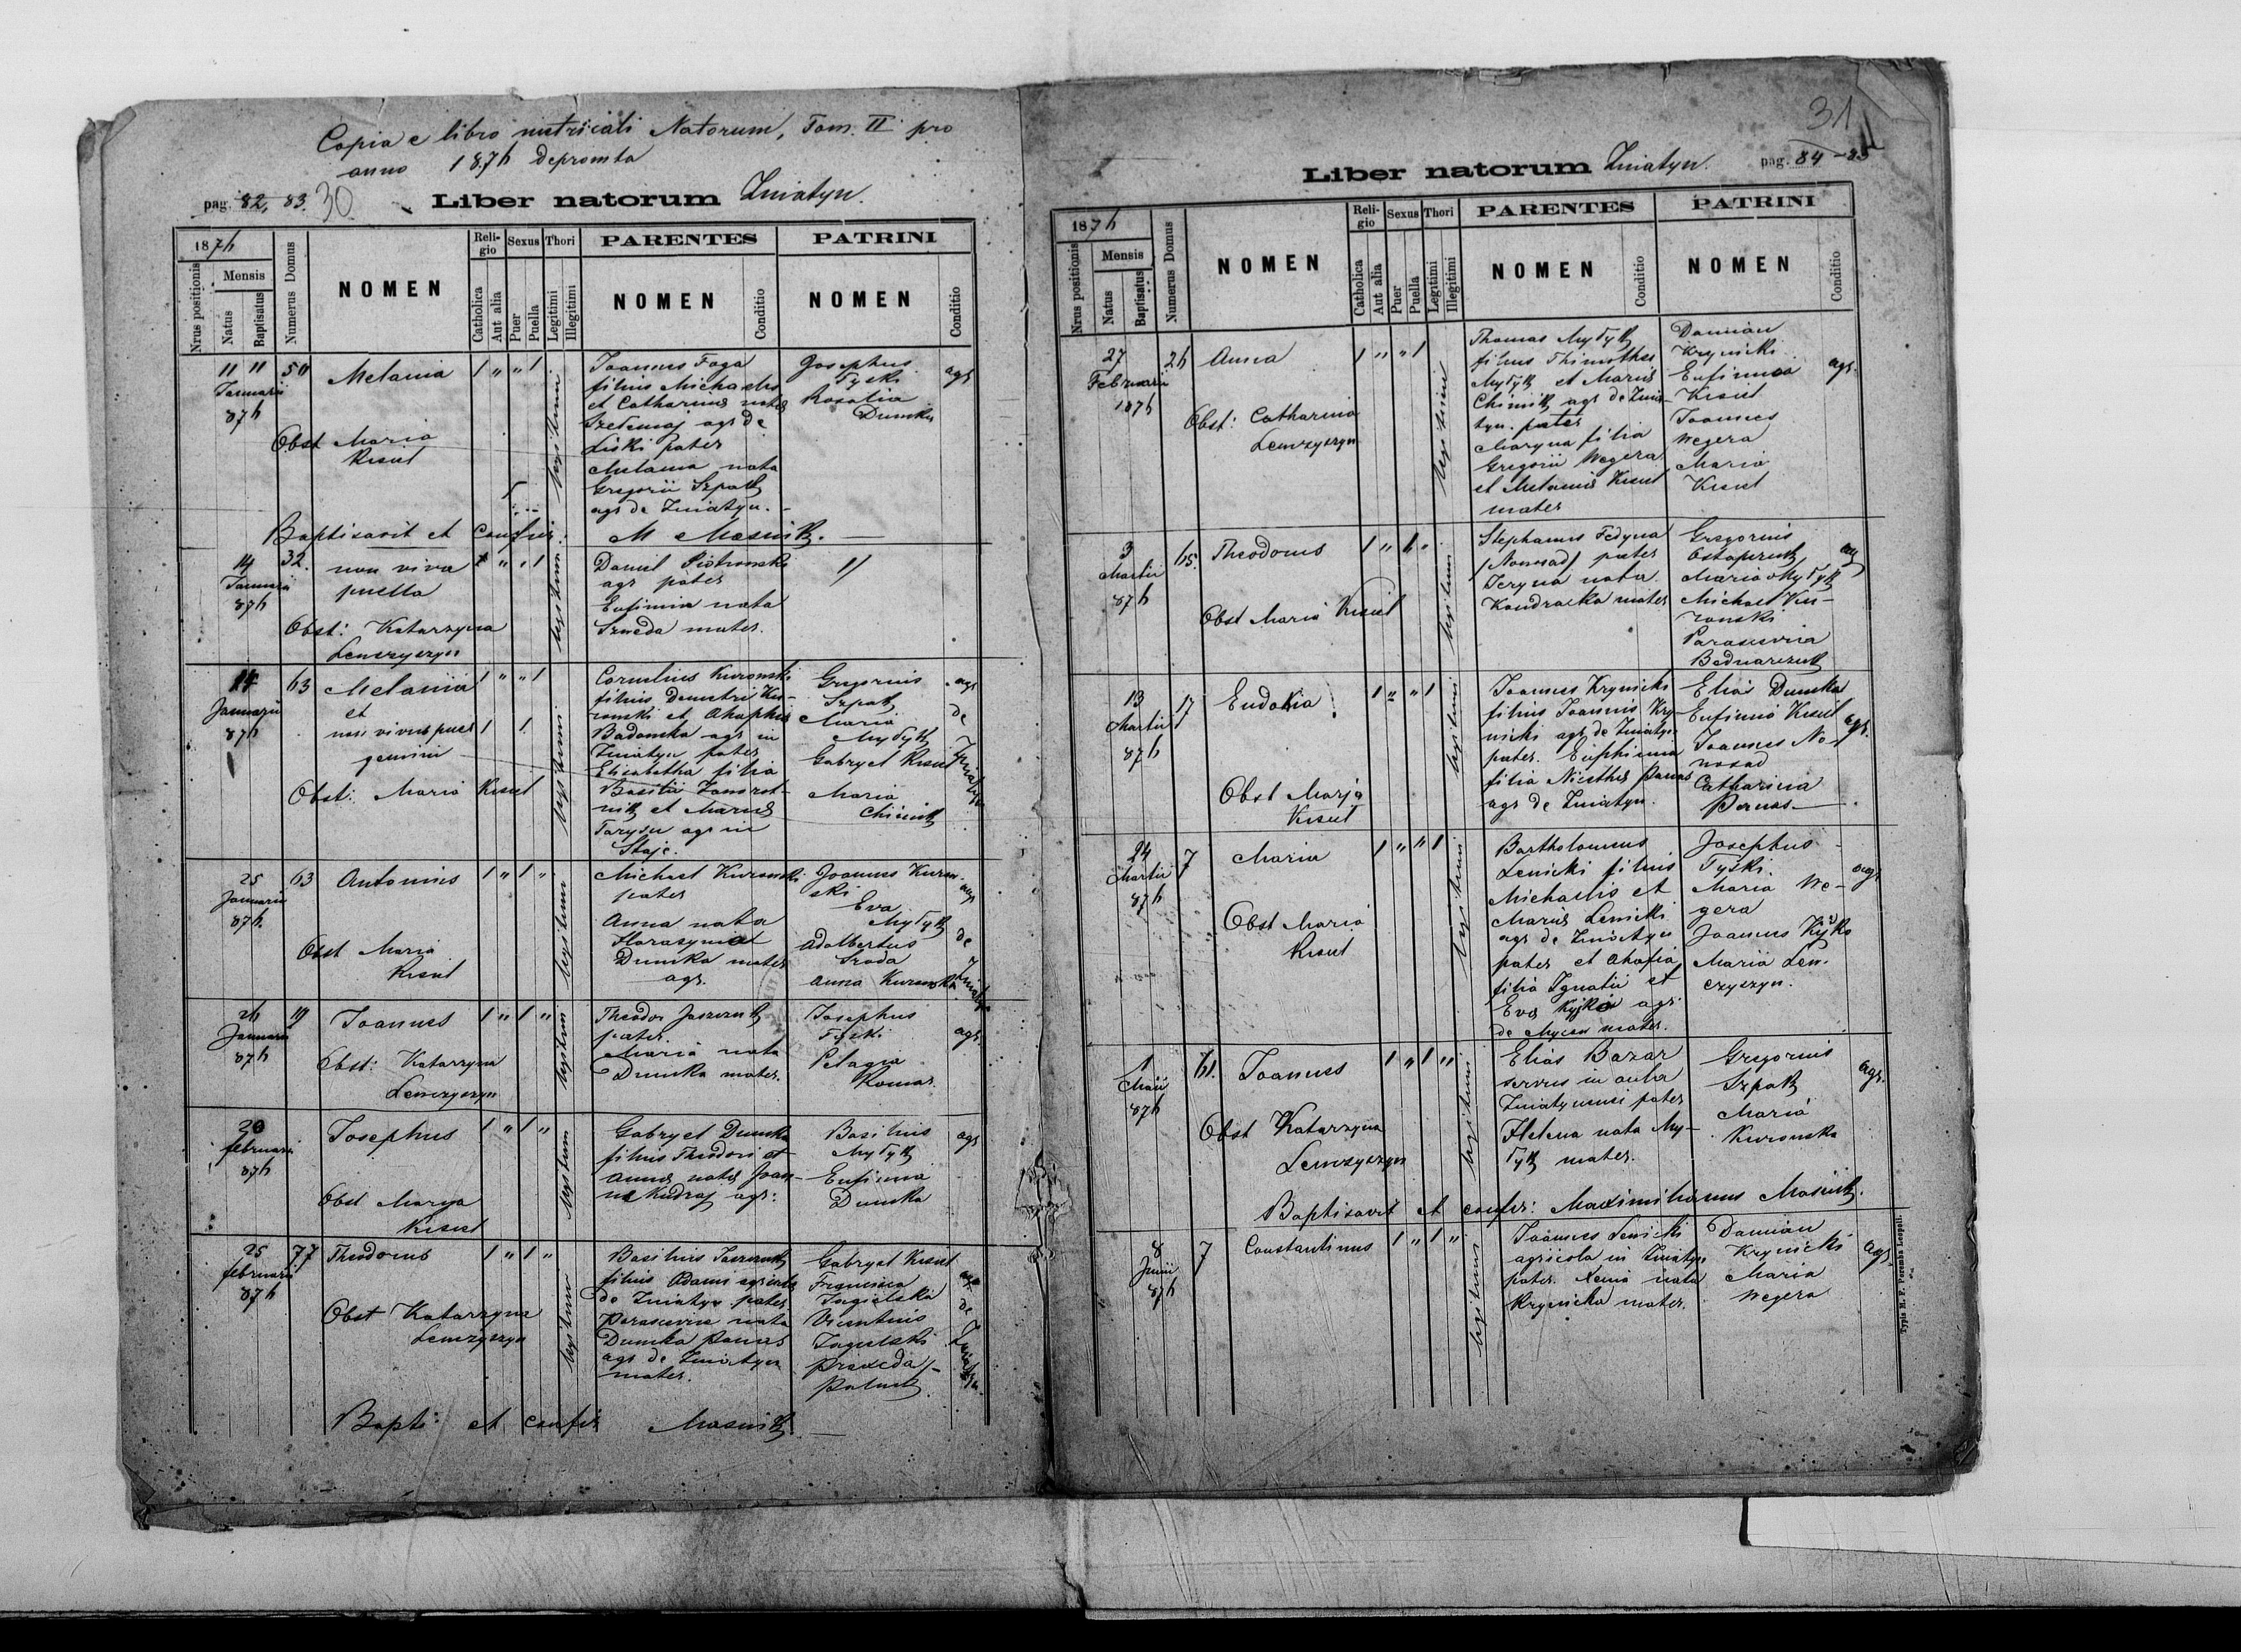 Copia e libro metricali Natorum, Tom. II pro
anno 1876 depromta
pag. 82, 83. 30
Liber natorum Żniatyn.
1876
Nrus positionis
Mensis
Natus
Baptisatus
Numerus Domus
NOMEN
Religio
Catholica
Aut alia
Sexus
Puer
Puella
Thori
Legitimi
Illegitimi
PARENTES
NOMEN
Conditio
PATRINI
NOMEN
Conditio
11 11 50 Melania 1 " " 1
Januarii
876
Obst Maria
Kisiel
legitimi
Joannes Faga
filius Michaelis
et Catharinae natae
agr de
Liski pater
Melania nata
Gregorii Szpak
agr de Żniatyn.
Josephus
Tyski
Rosalia
Dumka
agr
Baptisavit et confir: M Masiuk.
14 32. non viva 1 " " 1
Januarii puella
876
Obst: Katarzyna
Lewczyszyn
legitimi
Daniel Piotrowski
agr pater
Eufimia nata
Szweda mater.
14 63 Melania 1 " " 1
Januarii et
876 non vivus puer 1 1
gemini
Obst: Maria Kisiel
legitimi
Cornelius Kuronski
filius Demetri Ku-
ronski et Ahaphia
Badowska agr in
Żniatyn pater
Elisabetha filia
Basilii
et Mariae
agr in
Staje.
Gregorius
Szpak
Maria
Mytyk
Gabryel Kisiel
Maria
Chimik
agr
de
Żniatyn
25 63 Antonius 1 " 1 "
Januarii
876.
Obst Maria
Kisiel
legitimi
Michael Kuronski
pater
Anna nata
Harasym et
Dumka mater
agr.
Joannes Kuron-
ski
Eva
Mytyk
Adalbertus
Sroda
Anna Kuronska
agr
de
Żniatyn
26 19 Joannes 1 " 1 "
Januarii
876
Obst: Katarzyna
Lewczyszyn
legitimi
Theodor Jaszczuk
pater.
Maria nata
Dumka mater.
Josephus
Tyski
Pelagia
Komar
agr.
20 Josephus 1 " 1 "
februarii
876
Obst Marya
Kisiel
legitimi
Gabryel Dumka
filius Theodori et
Annae natae Joan-
ne Kudraj agr:
Basilius
Mytyk
Eufimia
Dumka
agr
25 77 Theodorus 1 " 1 "
februarii
876
Obst Katarzyna
Lewczyszyn
legitimi
Basilius Jaszczuk
filius Adami agricola
de Żniatyn pater
Parascevia nata
Dumka Panas
agr de Żniatyn
mater.
Gabryel Kisiel
Francisca
Jagielska
Vicentius
Jagielski
Praxeda
Paluch
agr
de
Żniatyn
Bapti: et confir Masiuk.
31
Liber natorum Żniatyn.
pag. 84-85
1876
Nrus positionis
Mensis
Natus
Baptisatus
Numerus Domus
NOMEN
Religio
Catholica
Aut alia
Sexus
Puer
Puella
Thori
Legitimi
Illegitimi
PARENTES
NOMEN
Conditio
PATRINI
NOMEN
Conditio
27 26 Anna 1 " " 1
Februarii
1876
Obst: Catharina
Lewczyszyn
legitimi
Thomas Mytyk
filius Thimothei
Mytyk et Mariae
Chimik agr de Żnia-
tyn. pater
Maryna filia
Gregorii Wegera
et Melaniae Kisiel
mater
Damian
Krynicki
Eufimia
Kisiel
Joannes
Wegera
Maria
Kisiel
agr.
3 65. Theodorus 1 " 1 "
Martii
876
Obst Maria Kisiel
legitimi
Stephanus Fedyna
/Nowosad/ pater
Jeryna nata
Kondracka mater
Gregorius
Ostapczuk
Maria Mytyk
Michael Ku-
ronski
Parascevia
Bednarczuk
agr
13 17 Eudokia 1 " " 1
Martii
876
Obst Marja
Kisiel
legitimi
Joannes Krynicki
filius Joannis Kry-
nicki agr de Żniatyn
pater. Euphimia
filia Panas
agr de Żniatyn.
Elias Dumka
Eufimia Kisiel
Joannes No-
wosad
Catharina
Panas
agr.
24 7 Maria 1 " " 1
Martii
876
Obst Maria
Kisiel
legitimi
Bartholomeus
Lenicki filius
Michaelis et
Mariae Lenicki
agr de Żniatyn
pater et Ahafia
filia Ignatii et
Eva Kyjko agr
de Mycow mater.
Josephus
Tyski.
Maria We-
gera
Joannes Kyjko
Maria Lew-
czyszyn.
agr
1 61. Joannes 1 " 1 "
Maii
876
Obst Katarzyna
Lewczyszyn
legitimi
Elias Bazar
servus in aula
Żniatynensi pater
Helena nata My-
tyk mater.
Gregorius
Szpak
Maria
Kuronska
agr.
Baptisavit et confir: Maximilianus Masiuk.
8 7 Constantinus 1 " 1 "
Junii
876
legitimi
Joannes Lenicki
agricola in Żniatyn
pater. Xenia nata
Krynicka mater.
Damian
Krynicki
Maria
Wegera
agr
Typis H. F. Poremba Leopoli.